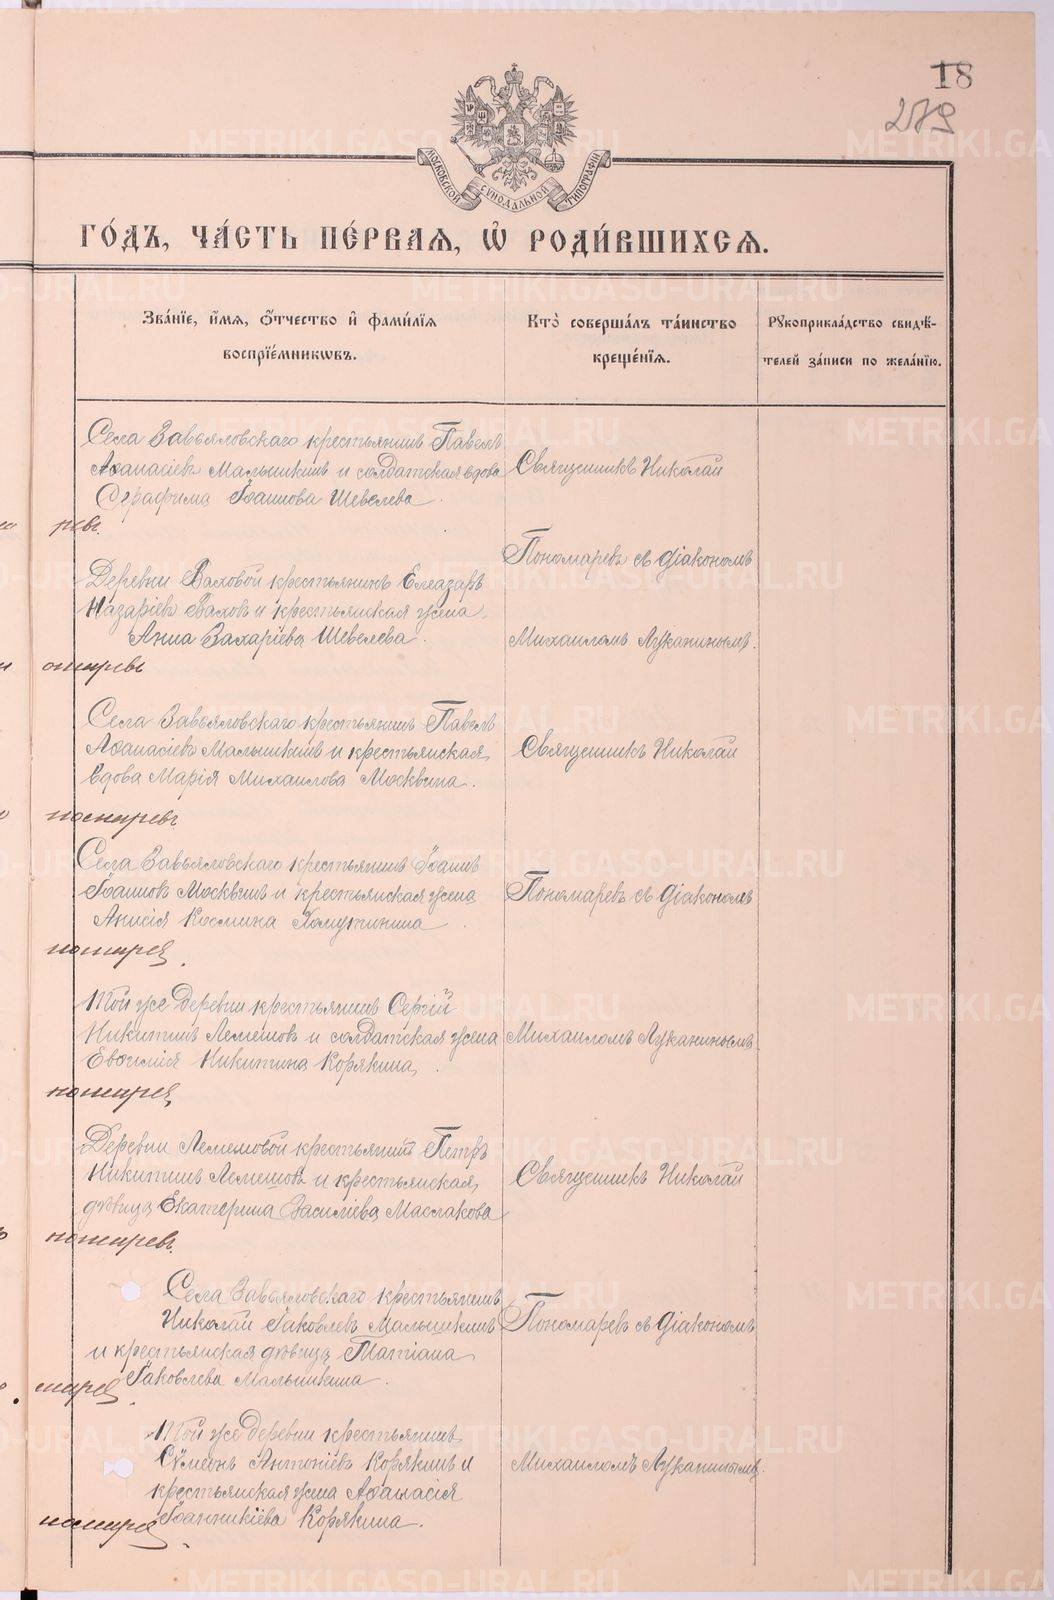 18
279
МОСКОВСКОЙ СѴНОДАЛЬНОЙ ТИПОГРАФІИ
ГО́ДЪ, ЧА́СТЬ ПЕ́РВАЯ, Ѽ РОДИ́ВШИХСЯ.
Зва́нїе, и҆́мѧ, ѻ҆́тчество и҆ фами́лїѧ
воспрїе́мникѡвъ.
Кто̀ соверша́лъ та́инство
креще́нїѧ.
Рꙋкоприкла́дство свидѣ́-
телей за́писи по жела́нїю.
Села Завьяловскаго крестьянинъ Павелъ
Аѳанасіевъ Малышкинъ и солдатская вдова
Серафима Іоаннова Шевелева.
Священникъ Николай
Пономаревъ съ діакономъ
Деревни Ваховой крестьянинъ Елеазаръ
Назаріевъ Ваховъ и крестьянская жена
Анна Захаріева Шевелева.
Михаиломъ Луканинымъ.
Села Завьяловскаго крестьянинъ Павелъ
Аѳанасіевъ Малышкинъ и крестьянская
вдова Марія Михаилова Москвина.
Священникъ Николай
Села Завьяловскаго крестьянинъ Іоаннъ
Іоанновъ Москвинъ и крестьянская жена
Анисія Космина Хомутинина.
Пономаревъ съ діакономъ
Той же деревни крестьянинъ Сергій
Никитинъ Лемешовъ и солдатская жена
Евѳимія Никитина Корякина.
Михаиломъ Луканинымъ
Деревни Лемешовой крестьянинъ Петръ
Никитинъ Лемешовъ и крестьянская
дѣвица Екатерина Василіева Маслакова
Священникъ Николай
Села Завьяловскаго крестьянинъ
Николай Іаковлевъ Малышкинъ
и крестьянская дѣвица Татіана
Іаковлева Малышкина.
Пономаревъ съ діакономъ
Той же деревни крестьянинъ
Сѵмеонъ Антоніевъ Корякинъ и
крестьянская жена Аѳанасія
Іоанникіева Корякина.
Михаиломъ Луканинымъ.
METRIKI.GASO-URAL.RU